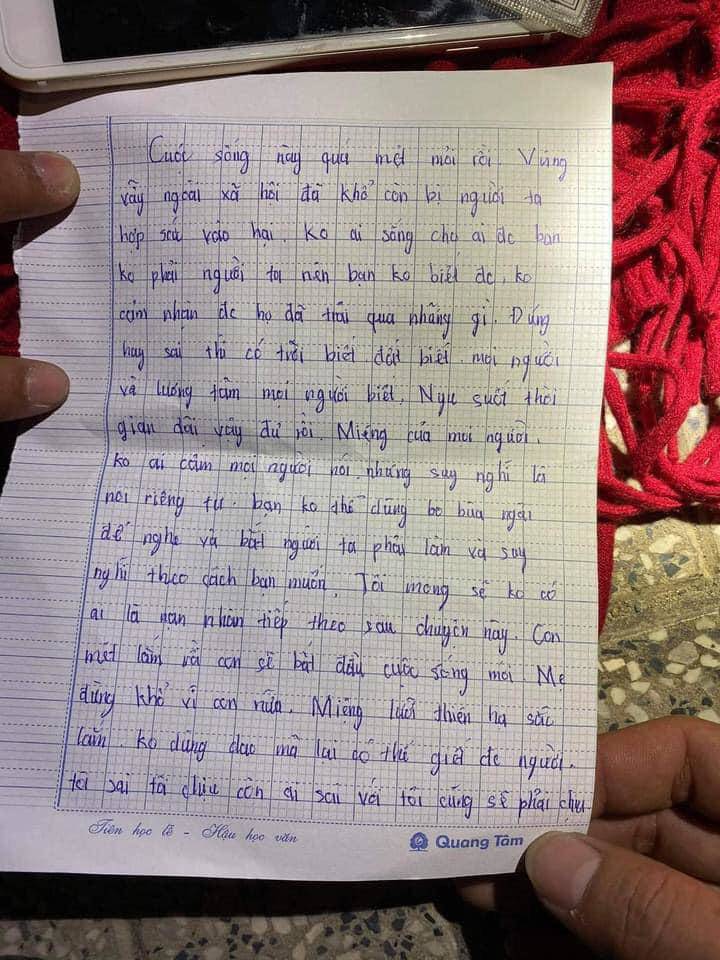 Cuộc sống này quá mệt mỏi rồi. Vùng
vẫy ngoài xã hội đã khổ còn bị người ta
hợp sức vào hại. Ko ai sống cho ai đc bạn
ko phải người ta nên bạn ko biết đc, ko
cảm nhận đc họ đã trải qua những gì. Đúng
hay sai thì có trời biết đất biết. mọi người
và lương tâm mọi người biết. Ngu suốt thời
gian dài vậy đủ rồi. Miệng của mọi người.
ko ai cấm mọi người nói. nhưng suy nghĩ là
nơi riêng tư. bạn ko thể dùng bo bùa ngải
để nghe và bắt người ta phải làm và suy
nghĩ theo cách bạn muốn. Tôi mong sẽ ko có
ai là nạn nhân tiếp theo sau chuyện này. Con
mệt lắm rồi con sẽ bắt đầu cuộc sống mới. Mẹ
đừng khổ vì con nữa. Miệng lưỡi thiên hạ sắc
lắm. ko dùng dao mà lại có thể giết đc người.
tôi sai tôi chịu còn ai sai với tôi cũng sẽ phải chịu
Tiên học lễ - Hậu học văn
Quang Tâm